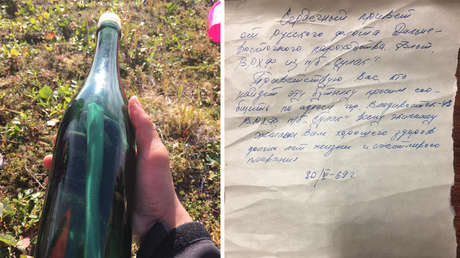 Сердечный привет
от Русского флота Дальне-
восточного пароходства
ВРХФ из п/б "Сулак".
Приветствую Вас кто
найдёт эту бутылку просим соо-
бщить по адресу гор. Владивосток-43
ВРХФ п/б Сулак всему экипажу
желаем Вам хорошего здоровья
долгих лет жизни и счастливого
плавания
20/VI-69 г.